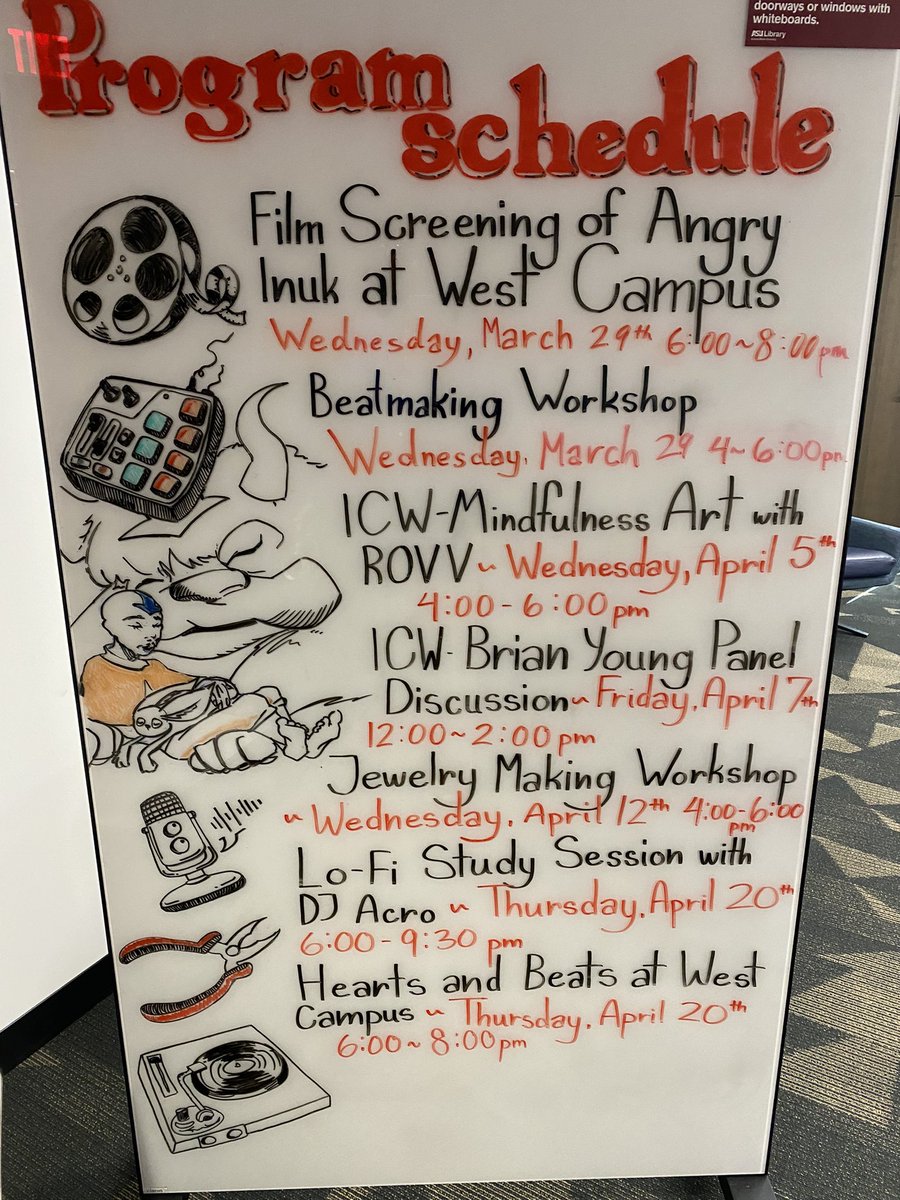 doorways or windows with
whiteboards.
ASU Library
EXIT
Program
schedule
Film Screening of Angry
Inuk at West Campus
Wednesday, March 29th 6:00~8:00pm
Beatmaking Workshop
Wednesday, March 29 4~6:00pm
ICW-Mindfulness Art with
ROVV ~ Wednesday, April 5th
4:00-6:00pm
ICW-Brian Young Panel
Discussion ~ Friday, April 7th
12:00~2:00 pm
Jewelry Making Workshop
~ Wednesday, April 12th 4:00-6:00
pm
Lo-Fi Study Session with
DJ Acro ~ Thursday, April 20th
6:00-9:30 pm
Hearts and Beats at West
Campus ~ Thursday, April 20th
6:00~8:00pm